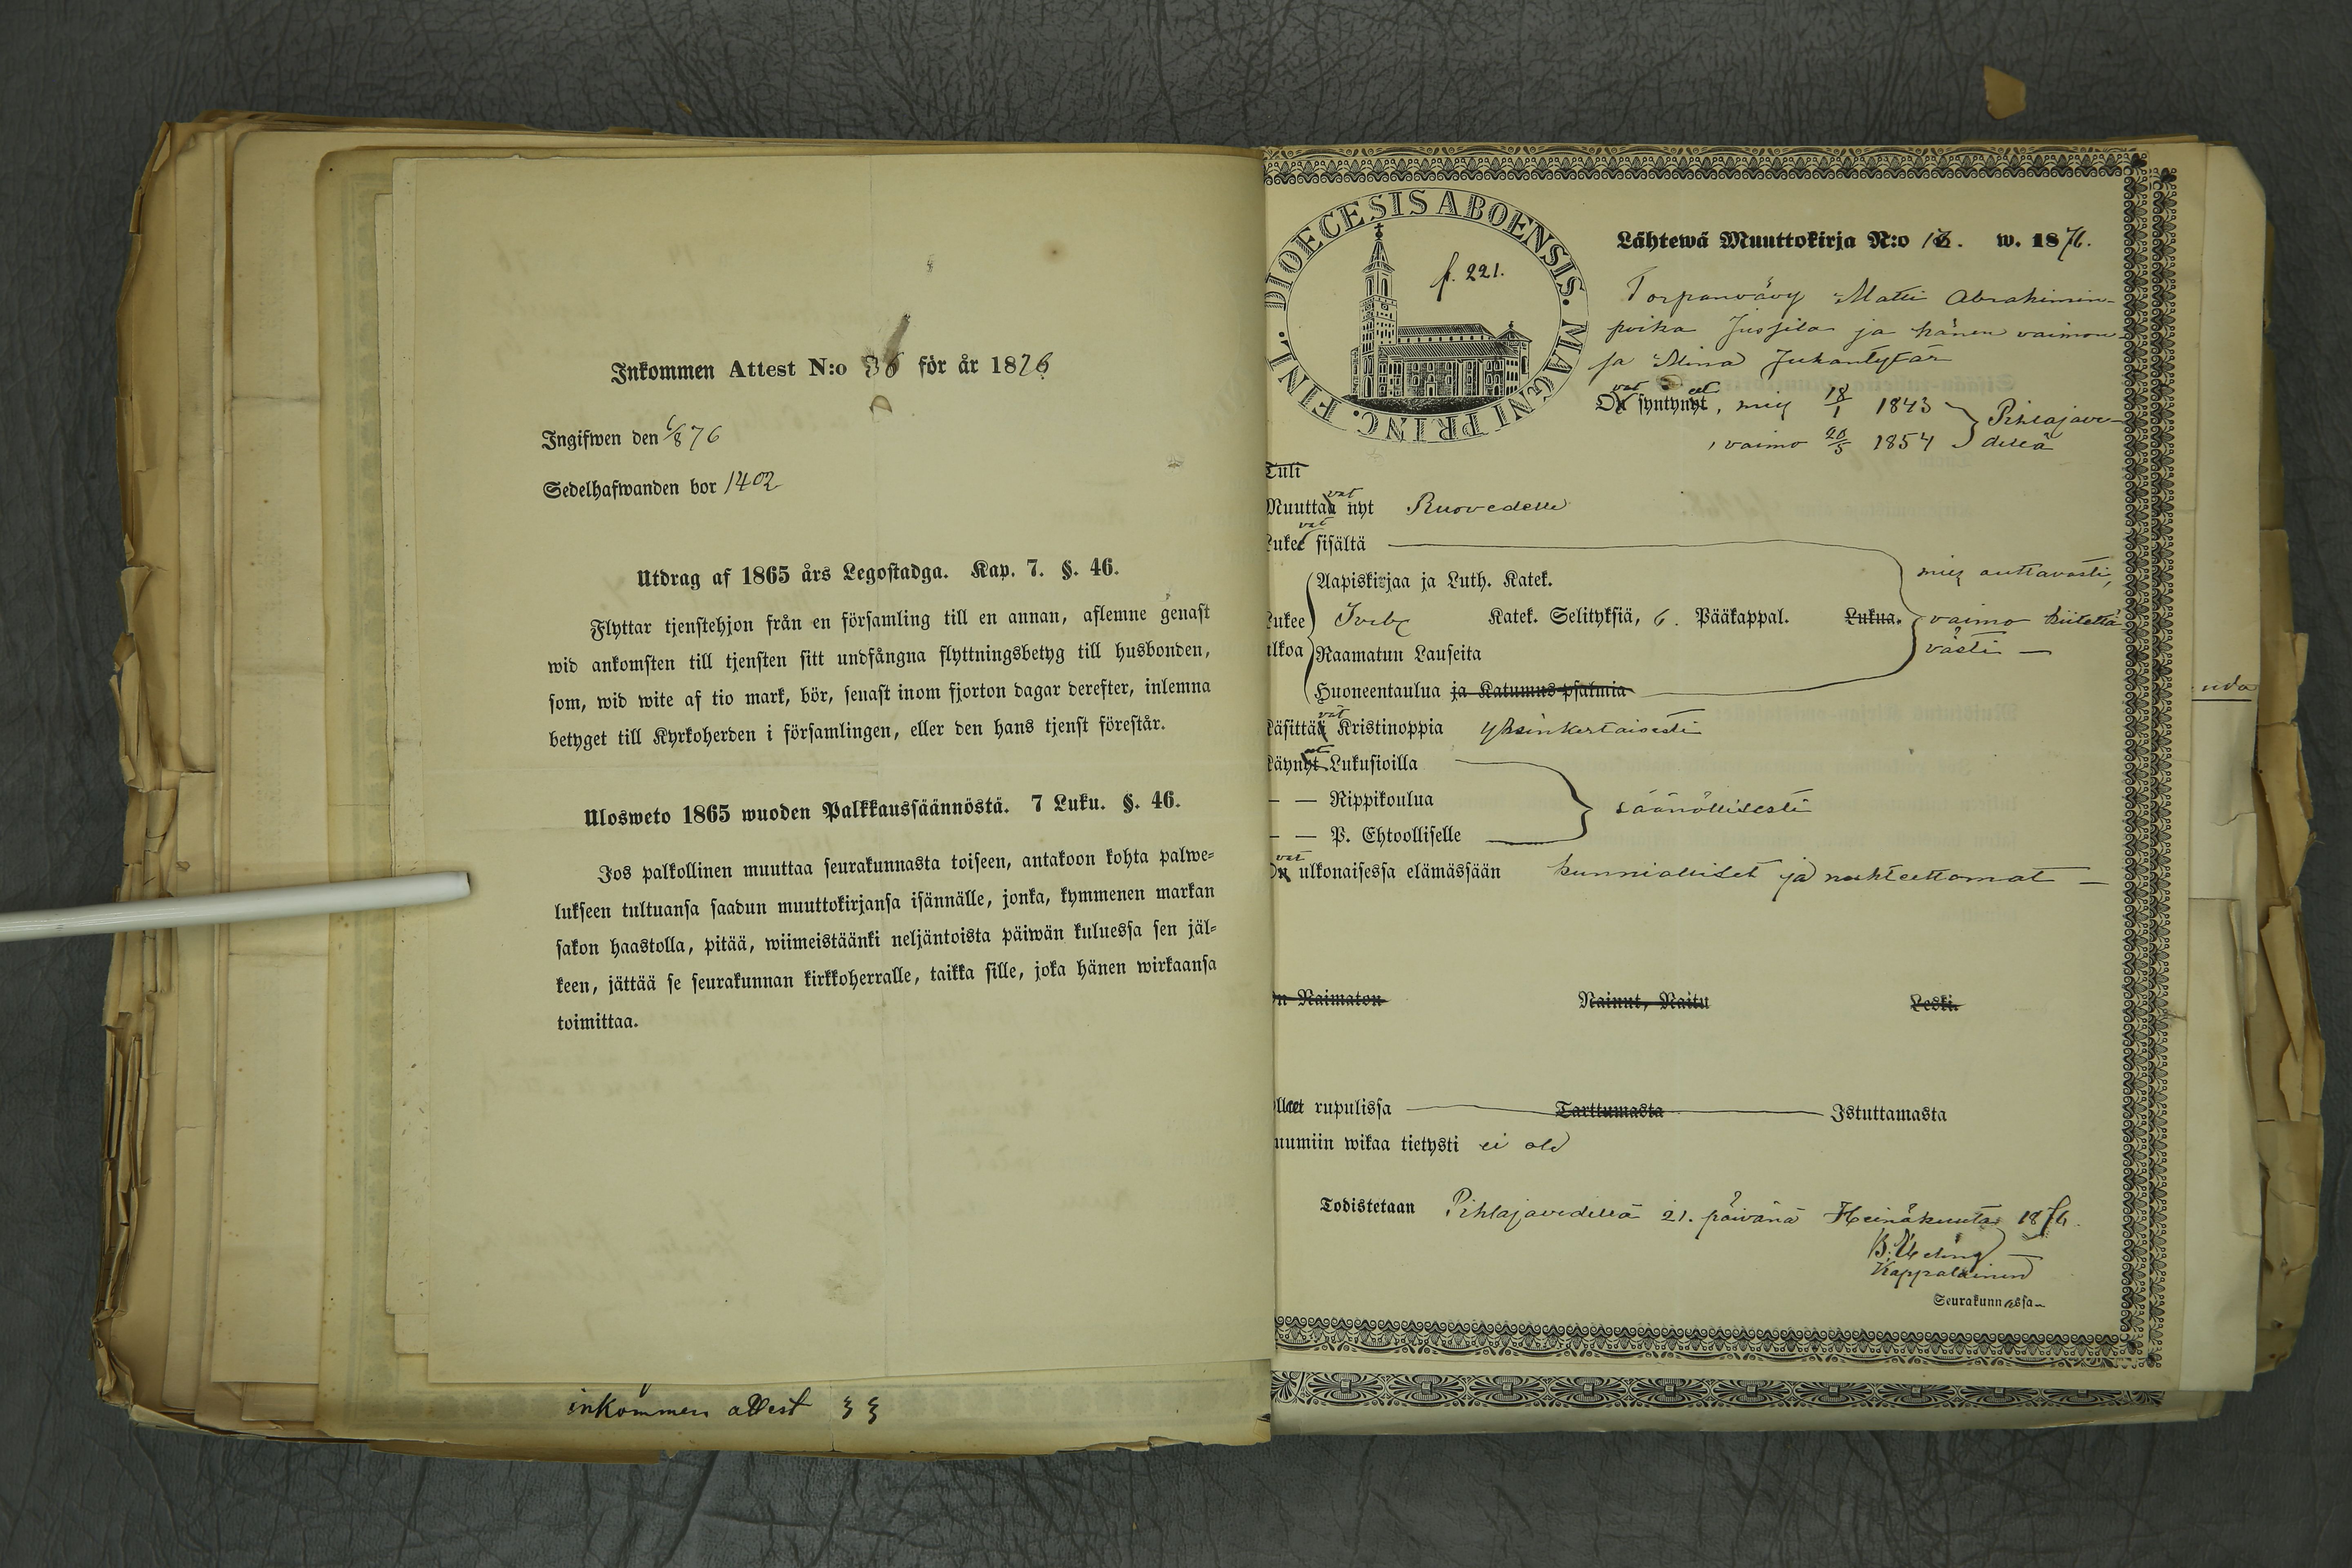 Inkommen Attest N:o 36 för år 1876
Ingifwen den 6/8 76
Sedelhafwanden bor 1402
Utdrag af 1865 års Legostadga. Kap. 7. §. 46.
Flyttar tjenstehjon från en församling till en annan, aflemne genast
wid ankomsten till tjensten sitt undfångna flyttningsbetyg till husbonden,
som, wid wite af tio mark, bör, senast inom fjorton dagar derefter, inlemna
betyget till Kyrkoherden i församlingen, eller den hans tjenst förestår.
Ulosweto 1865 wuoden Palkkaussäännöstä. 7 Luku. §. 46.
Jos palkollinen muuttaa seurakunnasta toiseen, antakoon kohta palwe=
lukseen tultuansa saadun muuttokirjansa isännälle, jonka, kymmenen markan
sakon haastolla, pitää, wiimeistäänki neljäntoista päiwän kuluessa sen jäl=
keen, jättää se seurakunnan kirkkoherralle, taikka sille, joka hänen wirkaansa
toimittaa.
inkommen attest
DIOECESIS ABOENSIS. MAGNI PRINC. FINL.
f. 221.
Lähtewä Muuttokirja N:o w. 1876.
Torpanvävy Matti Abrahimin-
poika Jussila ja hänen vaimon-
sa Miina Juhantytär
Ovat syntyneet, mies 18/1 1843 } Pihlajave-
, vaimo 20/5 1854 } dellä
Tuli
Muuttavat nyt Ruovedelle
Lukevat sisältä
Aapiskirjaa ja Luth. Katek. mies auttavasti,
Lukee Katek. Selityksiä, 6. Pääkappal. Lukua. vaimo kiitettä-
ulkoa Raamatun Lauseita västi —
Huoneentaulua ja Katumus-psalmia
Käsittävät Kristinoppia yksinkertaisesti
Käyneet Lukusioilla
— — Rippikoulua säännöllisesti
— — P. Ehtoolliselle
Ovat ulkonaisessa elämässään kunnialliset ja nuhteettomat —
On Naimaton Nainut, Naitu Leski.
olleet rupulissa — Tarttumasta — Istuttamasta
ruumiin wikaa tietysti ei ole
Todistetaan Pihlajavedellä 21. päivänä Heinäkuuta 1876.
Kappalainen
Seurakunnassa